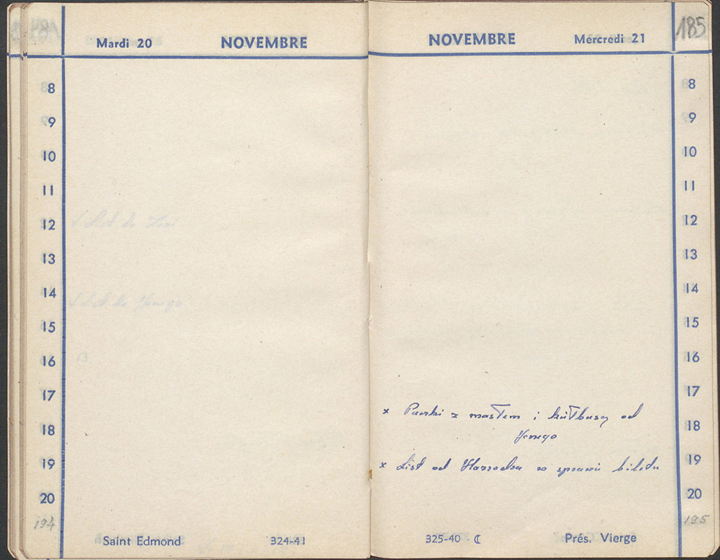 Mardi 20 NOVEMBRE
8
9
10
11
12
13
14
15
16
17
18
19
20
194
Saint Edmond 324-41
NOVEMBRE Mercredi 21
185
8
9
10
11
12
13
14
15
16
17
18
19
20
195
x Paczki z masłem i kiełbasą od
x List od w sprawie biletu
325-40 ☾ Prés. Vierge